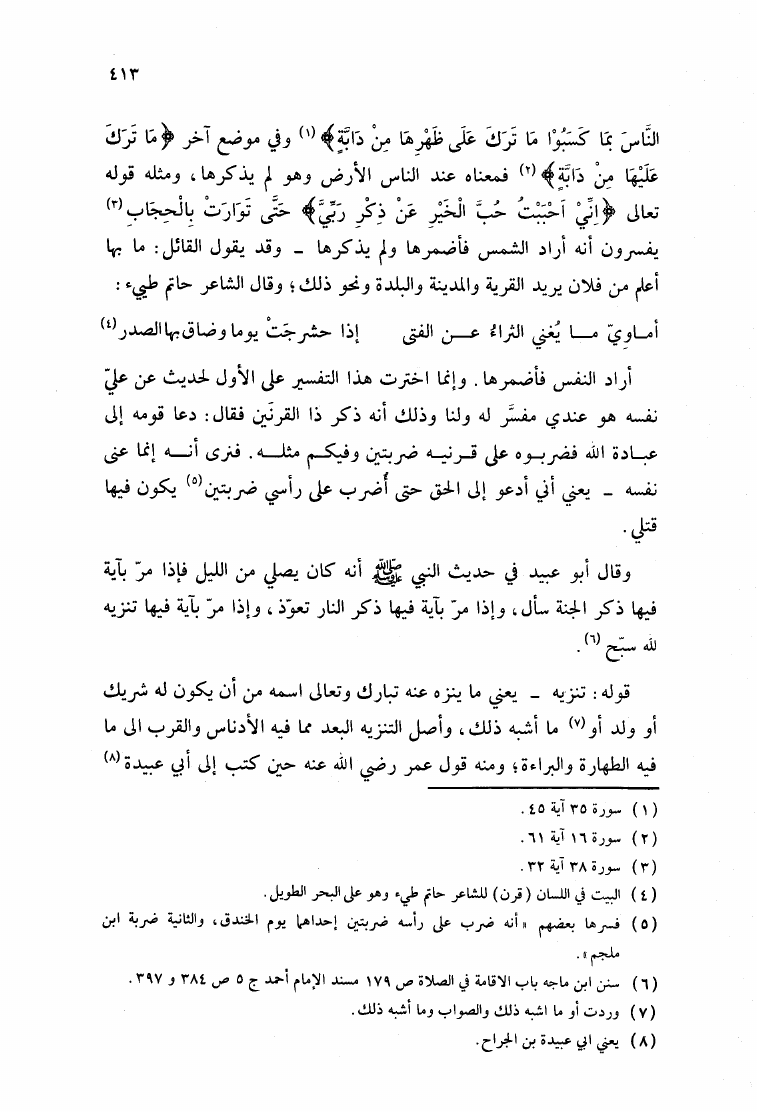 ٤١٣
النَّاسَ بِمَا كَسَبُوْا مَا تَرَكَ عَلَى ظَهْرِهَا مِنْ دَابَّةٍ﴾(١) وفي موضع آخر ﴿مَا تَرَكَ
عَلَيْهَا مِنْ دَابَّةٍ﴾(٢) فمعناه عند الناس الأرض وهو لم يذكرها ، ومثله قوله
تعالى ﴿إِنِّيْ أَحْبَبْتُ حُبَّ الْخَيْرِ عَنْ ذِكْرِ رَبِّيْ﴾ حَتَّى تَوَارَتْ بِالْحِجَابِ(٣)
يفسرون أنه أراد الشمس فأضمرها ولم يذكرها - وقد يقول القائل : ما بها
أعلم من فلان يريد القرية والمدينة والبلدة ونحو ذلك ؛ وقال الشاعر حاتم طيء :
أماويّ ما يُغني الثراءُ عن الفتى إذا حشرجتْ يوما وضاق بها الصدر(٤)
أراد النفس فأضمرها . وإنما اخترت هذا التفسير على الأول لحديث عن عليّ
نفسه هو عندي مفسَّر له ولنا وذلك أنه ذكر ذا القرنَين فقال : دعا قومه إلى
عبادة الله فضربوه على قرنيه ضربتين وفيكم مثله . فنرى أنه إنما عنى
نفسه - يعني أني أدعو إلى الحق حتى أُضرب على رأسي ضربتين(٥) يكون فيها
قتلي .
وقال أبو عبيد في حديث النبي ﷺ أنه كان يصلي من الليل فإذا مرّ بآية
فيها ذكر الجنة سأل ، وإذا مرّ بآية فيها ذكر النار تعوّذ ، وإذا مرّ بآية فيها تنزيه
لله سبّح(٦) .
قوله : تنزيه - يعني ما ينزه عنه تبارك وتعالى اسمه من أن يكون له شريك
أو ولد أو(٧) ما أشبه ذلك ، وأصل التنزيه البعد مما فيه الأدناس والقرب الى ما
فيه الطهارة والبراءة ؛ ومنه قول عمر رضي الله عنه حين كتب إلى أبي عبيدة(٨)
(١) سورة ٣٥ آية ٤٥ .
(٢) سورة ١٦ آية ٦١ .
(٣) سورة ٣٨ آية ٣٢ .
(٤) البيت في اللسان (قرن) للشاعر حاتم طيء وهو على البحر الطويل .
(٥) فسرها بعضهم «أنه ضرب على رأسه ضربتين إحداهما يوم الخندق ، والثانية ضربة ابن
ملجم» .
(٦) سنن ابن ماجه باب الاقامة في الصلاة ص ١٧٩ مسند الإمام أحمد ج ٥ ص ٣٨٤ و ٣٩٧ .
(٧) وردت أو ما اشبه ذلك والصواب وما أشبه ذلك .
(٨) يعني ابي عبيدة بن الجراح .